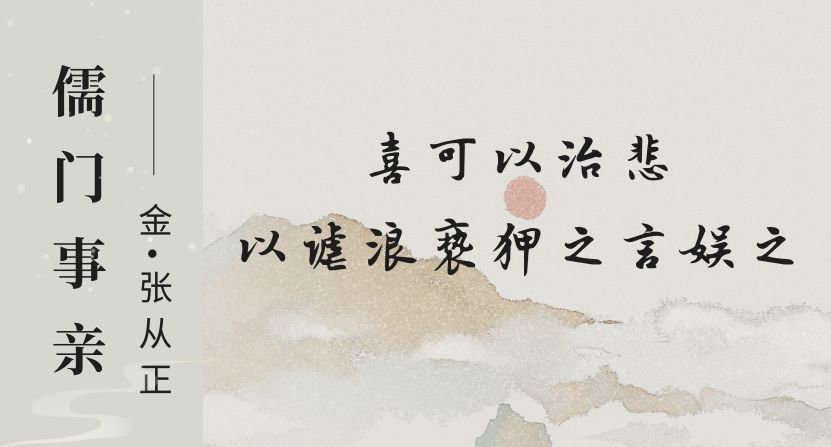 儒门事亲
——金·张从正
喜可以治悲
以谑浪亵狎之言娱之